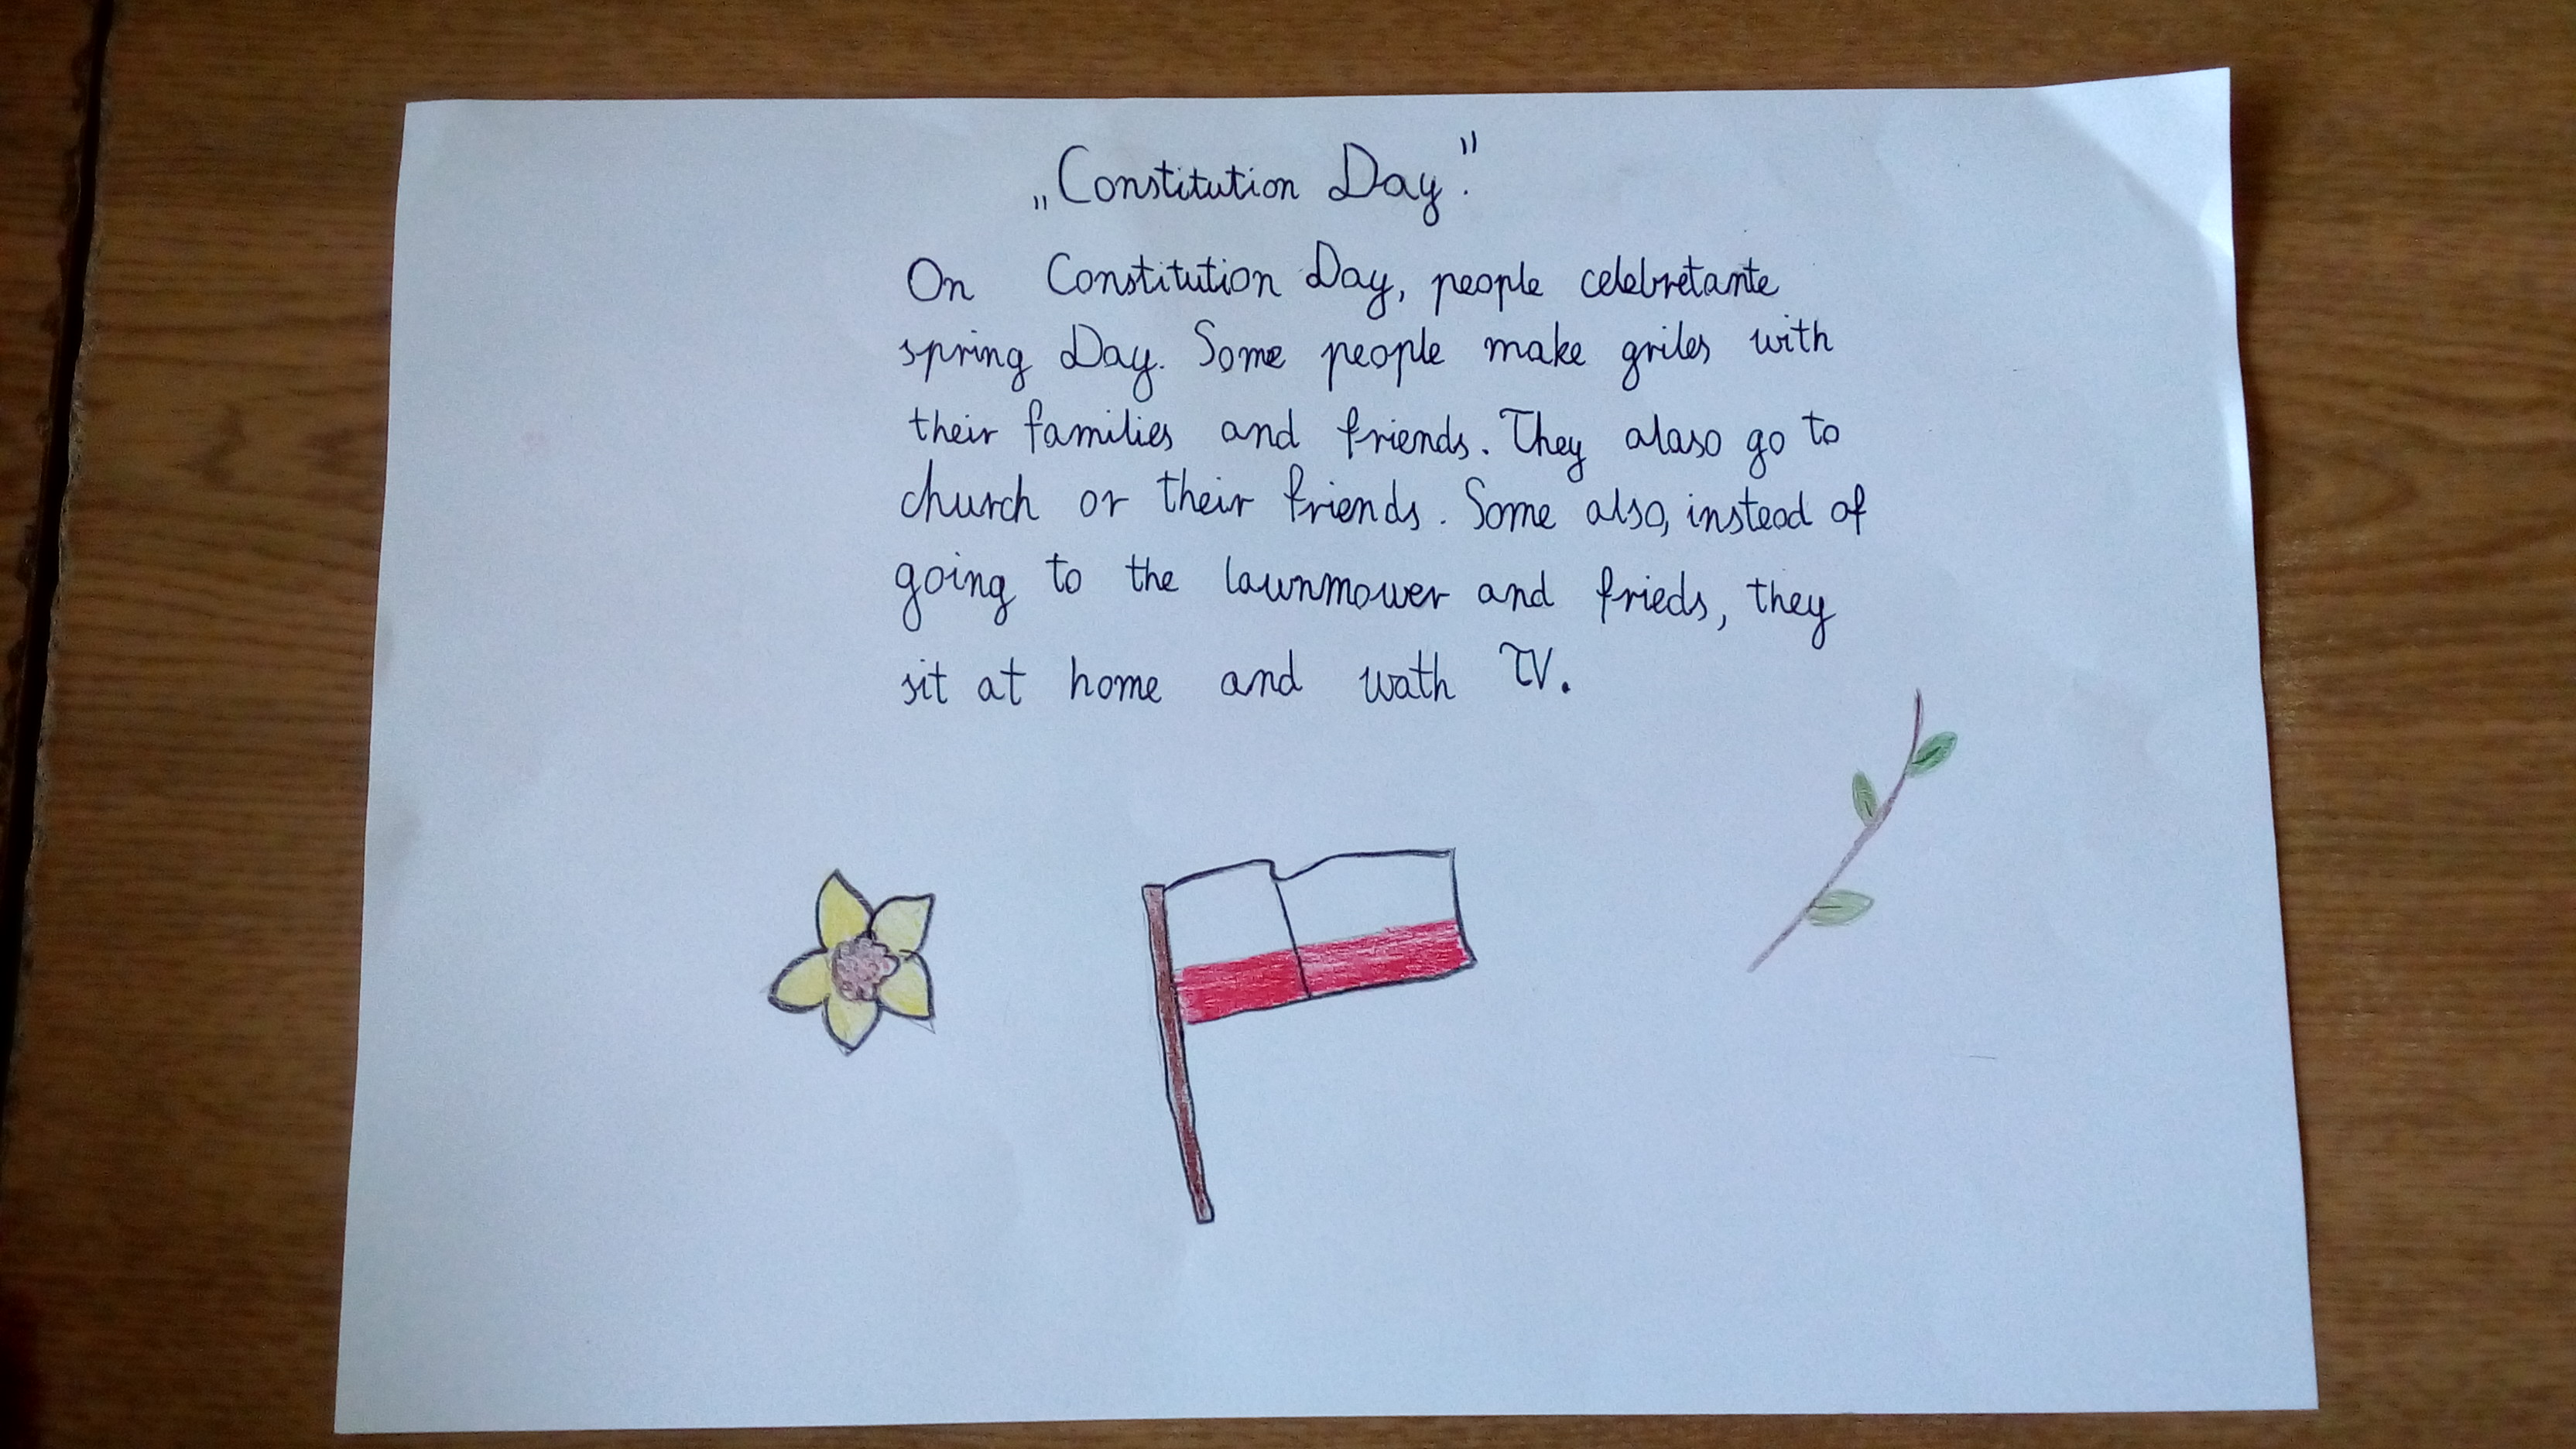 „Constitution Day."
On Constitution Day, people celebretante
spring Day. Some people make griles with
their families and friends. They alaso go to
church or their friends. Some also, instead of
going to the lawnmower and frieds, they
sit at home and wath TV.